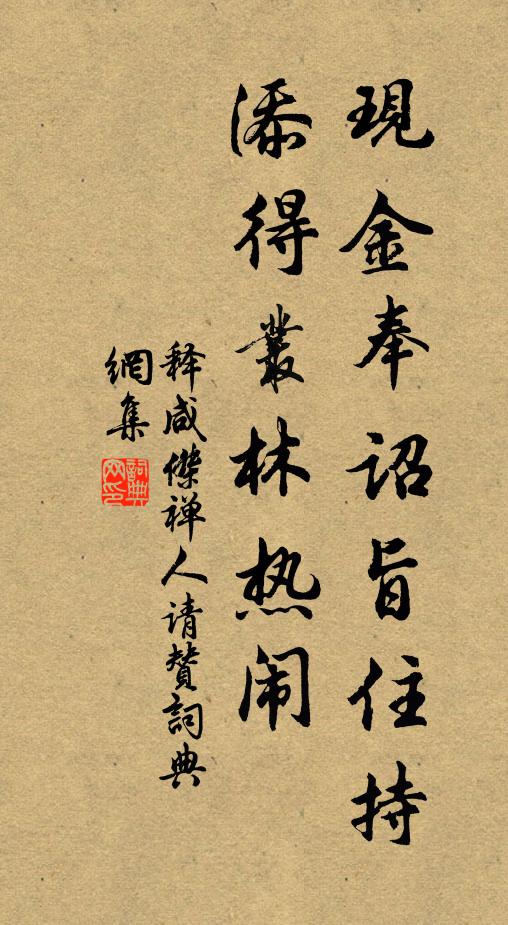 現金奉詔旨住持
添得叢林热闹
释咸傑禅人请赞詞典
網集
詞典
网印